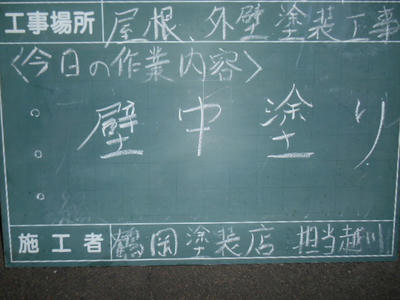 工事場所 屋根、外壁塗装工事
〈今日の作業内容〉
壁中塗り
施工者 鶴岡塗装店 担当越川